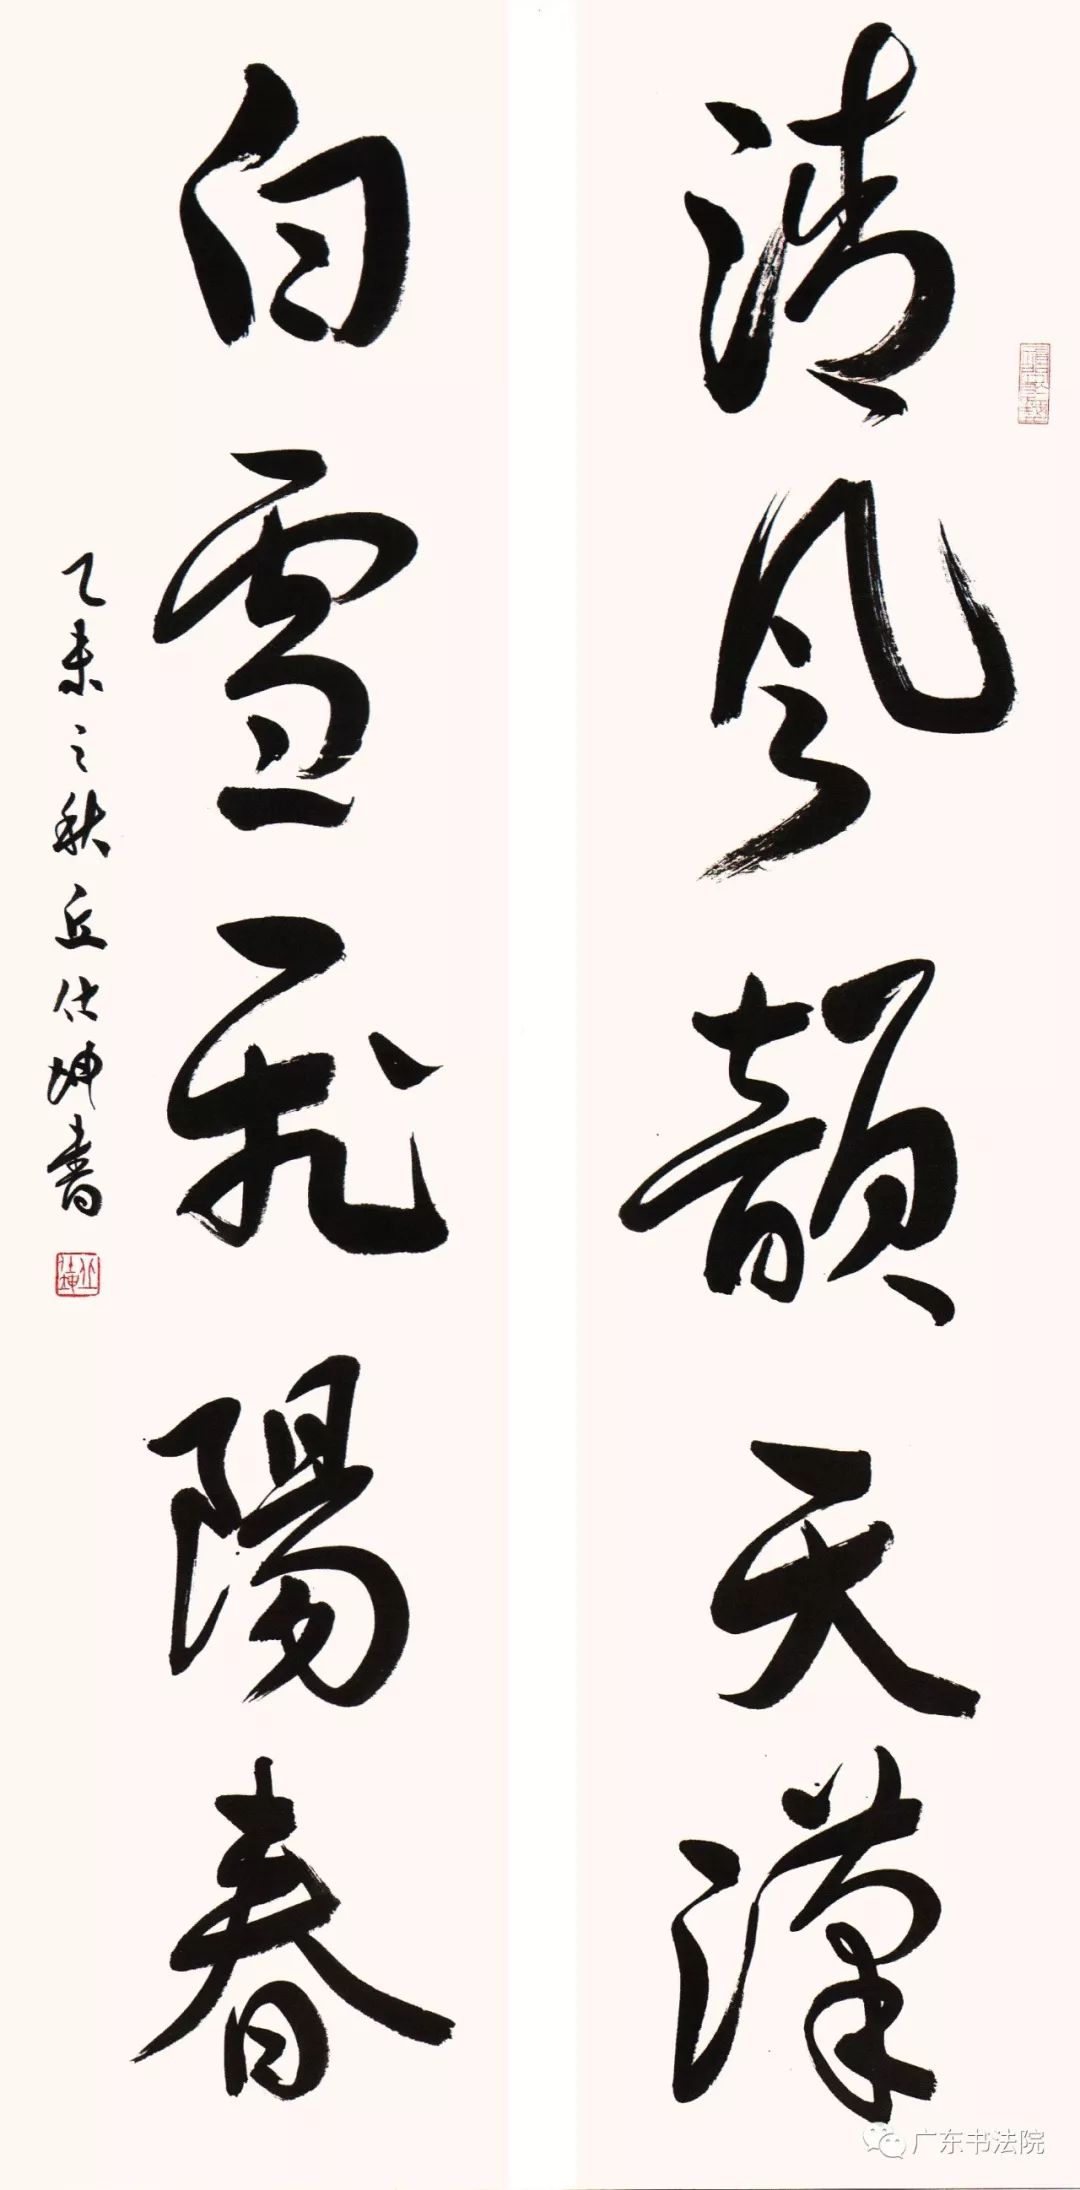 清风韻天漢
白雪飛陽春
乙未之秋丘仕坤書
广东书法院